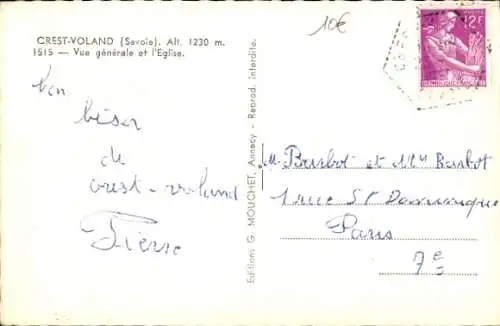 CREST-VOLAND (Savoie). Alt. 1230 m.
1515 — Vue générale et l'Eglise.
bon
béser
de
crest-voland
Pierre
Editions G. MOUCHET, Annecy - Reprod. interdite.
10€
12F
M. Barbot et Mme Barbot
1 rue St Dominique
Paris
7e